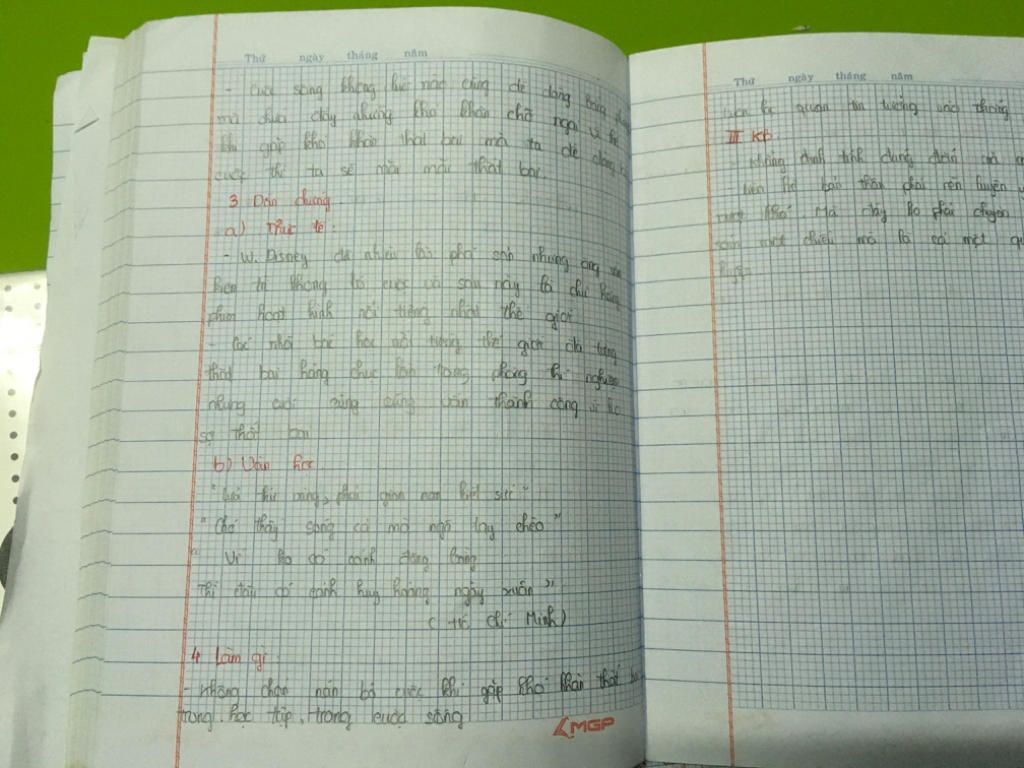 Thứ ngày tháng năm
- Cuộc sống không lúc nào cũng dễ dàng
mà chứa đầy những khó khăn
khi gặp khó khăn thất bại mà ta dễ dàng
cuộc thì ta sẽ mãi mãi thất bại
3 Dẫn chứng
a) Thực tế:
- W. Disney đã nhiều lần phá sản nhưng ông vẫn
kiên trì không bỏ cuộc và sau này là chủ hãng
phim hoạt hình nổi tiếng nhất thế giới
- Các nhà bác học nổi tiếng thế giới đã từng
thất bại hàng chục lần trong phòng thí nghiệm
nhưng cuối cùng cũng vẫn thành công vì ko
sợ thất bại
b) Văn học
"Lửa thử vàng, gian nan sức"
"Chớ thấy sóng cả mà ngã tay chèo"
" Ví ko có cảnh đông
Thì đâu có cảnh huy hoàng ngày xuân"
( Hồ Chí Minh)
4 Làm gì
- Không chán nản bỏ cuộc khi gặp khó khăn thất
trong học tập, trong cuộc sống
MGP
Thứ ngày tháng năm
lạc quan tin tưởng vào
III KB
- Khẳng định tính đúng đắn
- Liên hệ bản thân phải rèn luyện
ko phải chuyện
một chiều mà là cả một